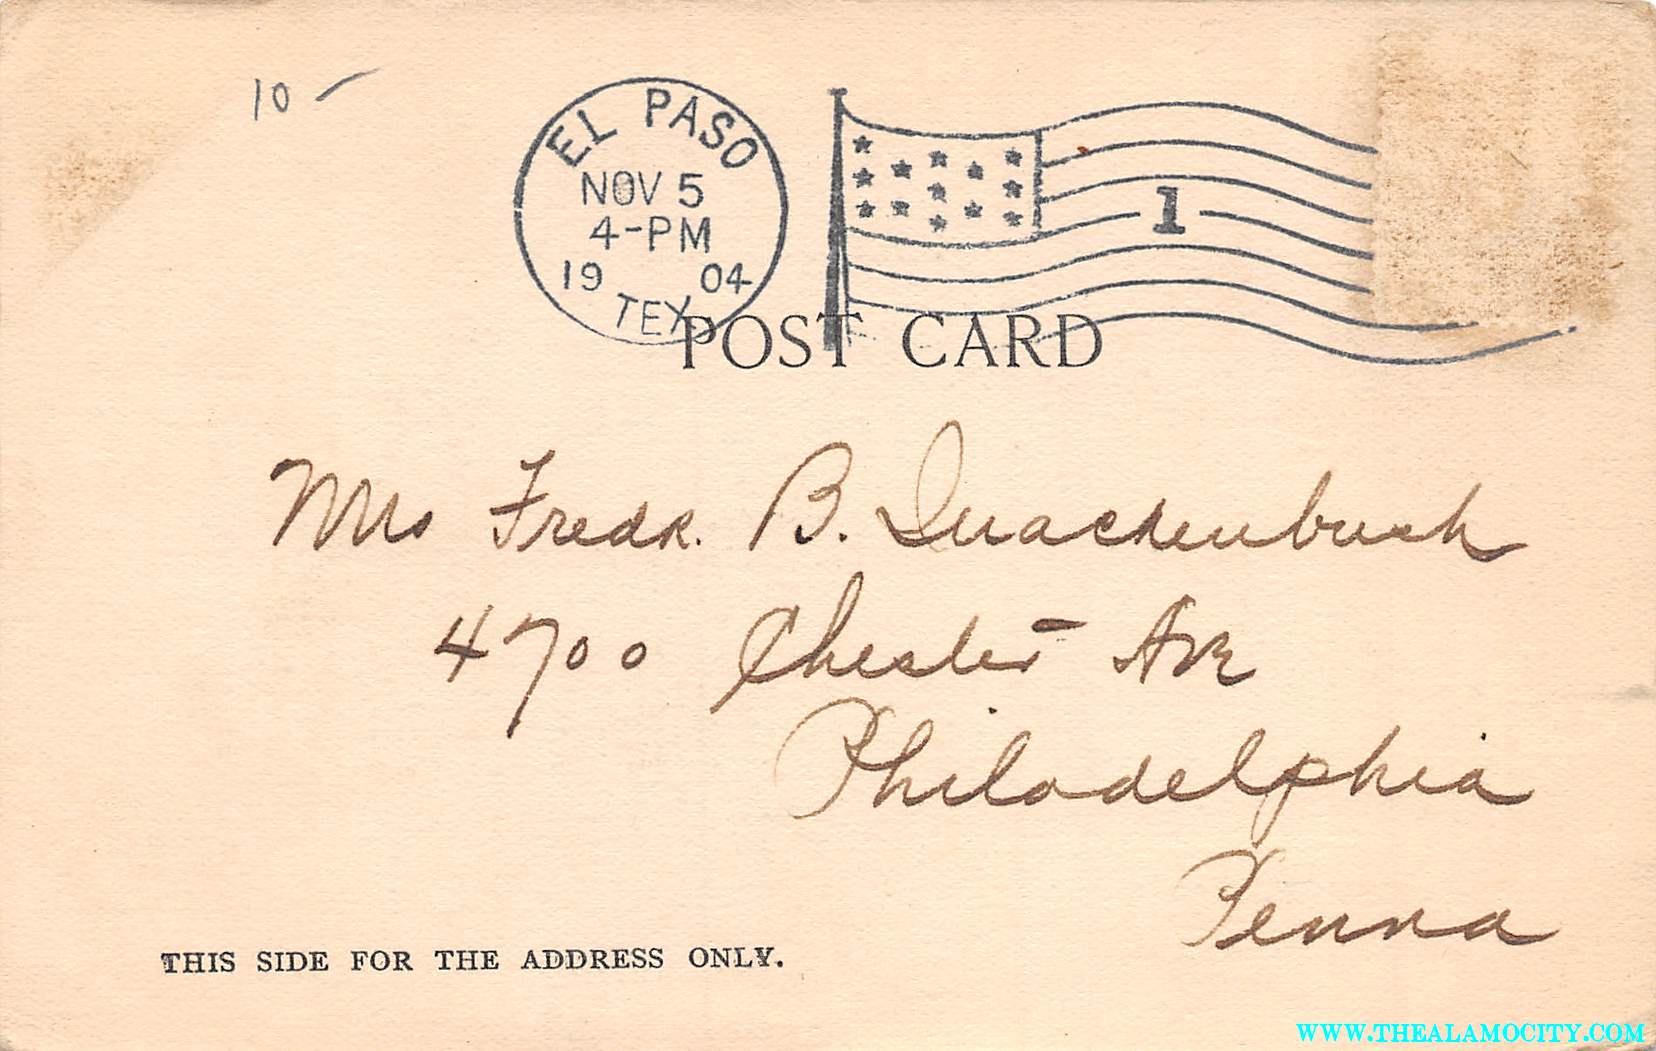 10 -
EL PASO
NOV 5
4-PM
19 04
TEX
1
POST CARD
Mrs Fredk. B. Quackenbush
4700 Chester Ave
Philadelphia
Penna
THIS SIDE FOR THE ADDRESS ONLY.
WWW.THEALAMOCITY.COM